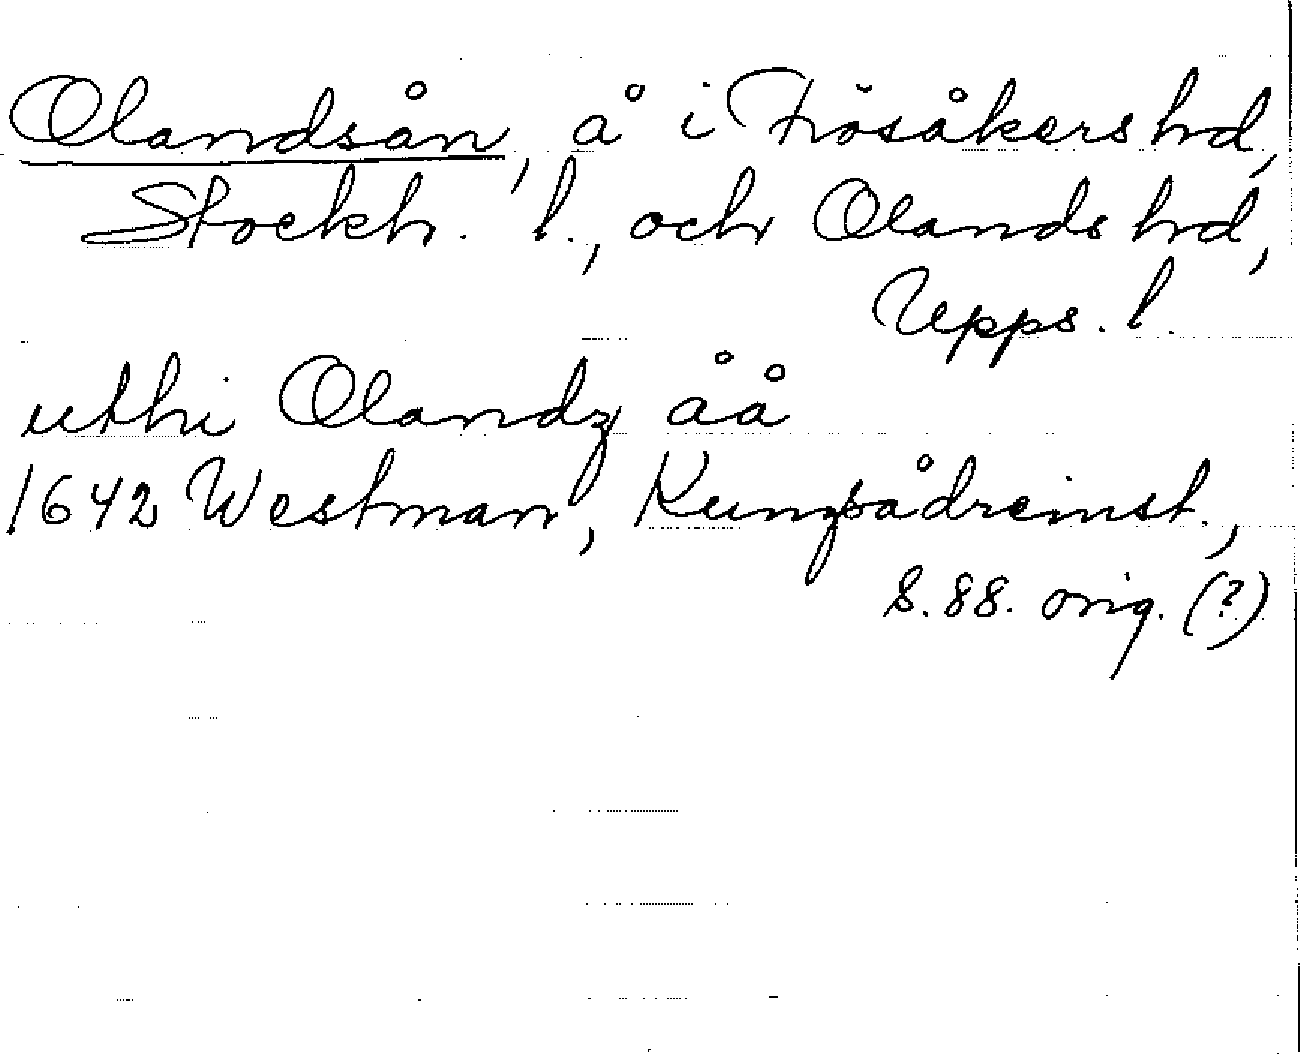 Olandsån, å i Frösåkers hd,
Stockh. l., och Olands hd,
Upps. l.
uthi Olandz åå
1642 Westman, Kungsådreinst.,
s. 88. orig. (?)